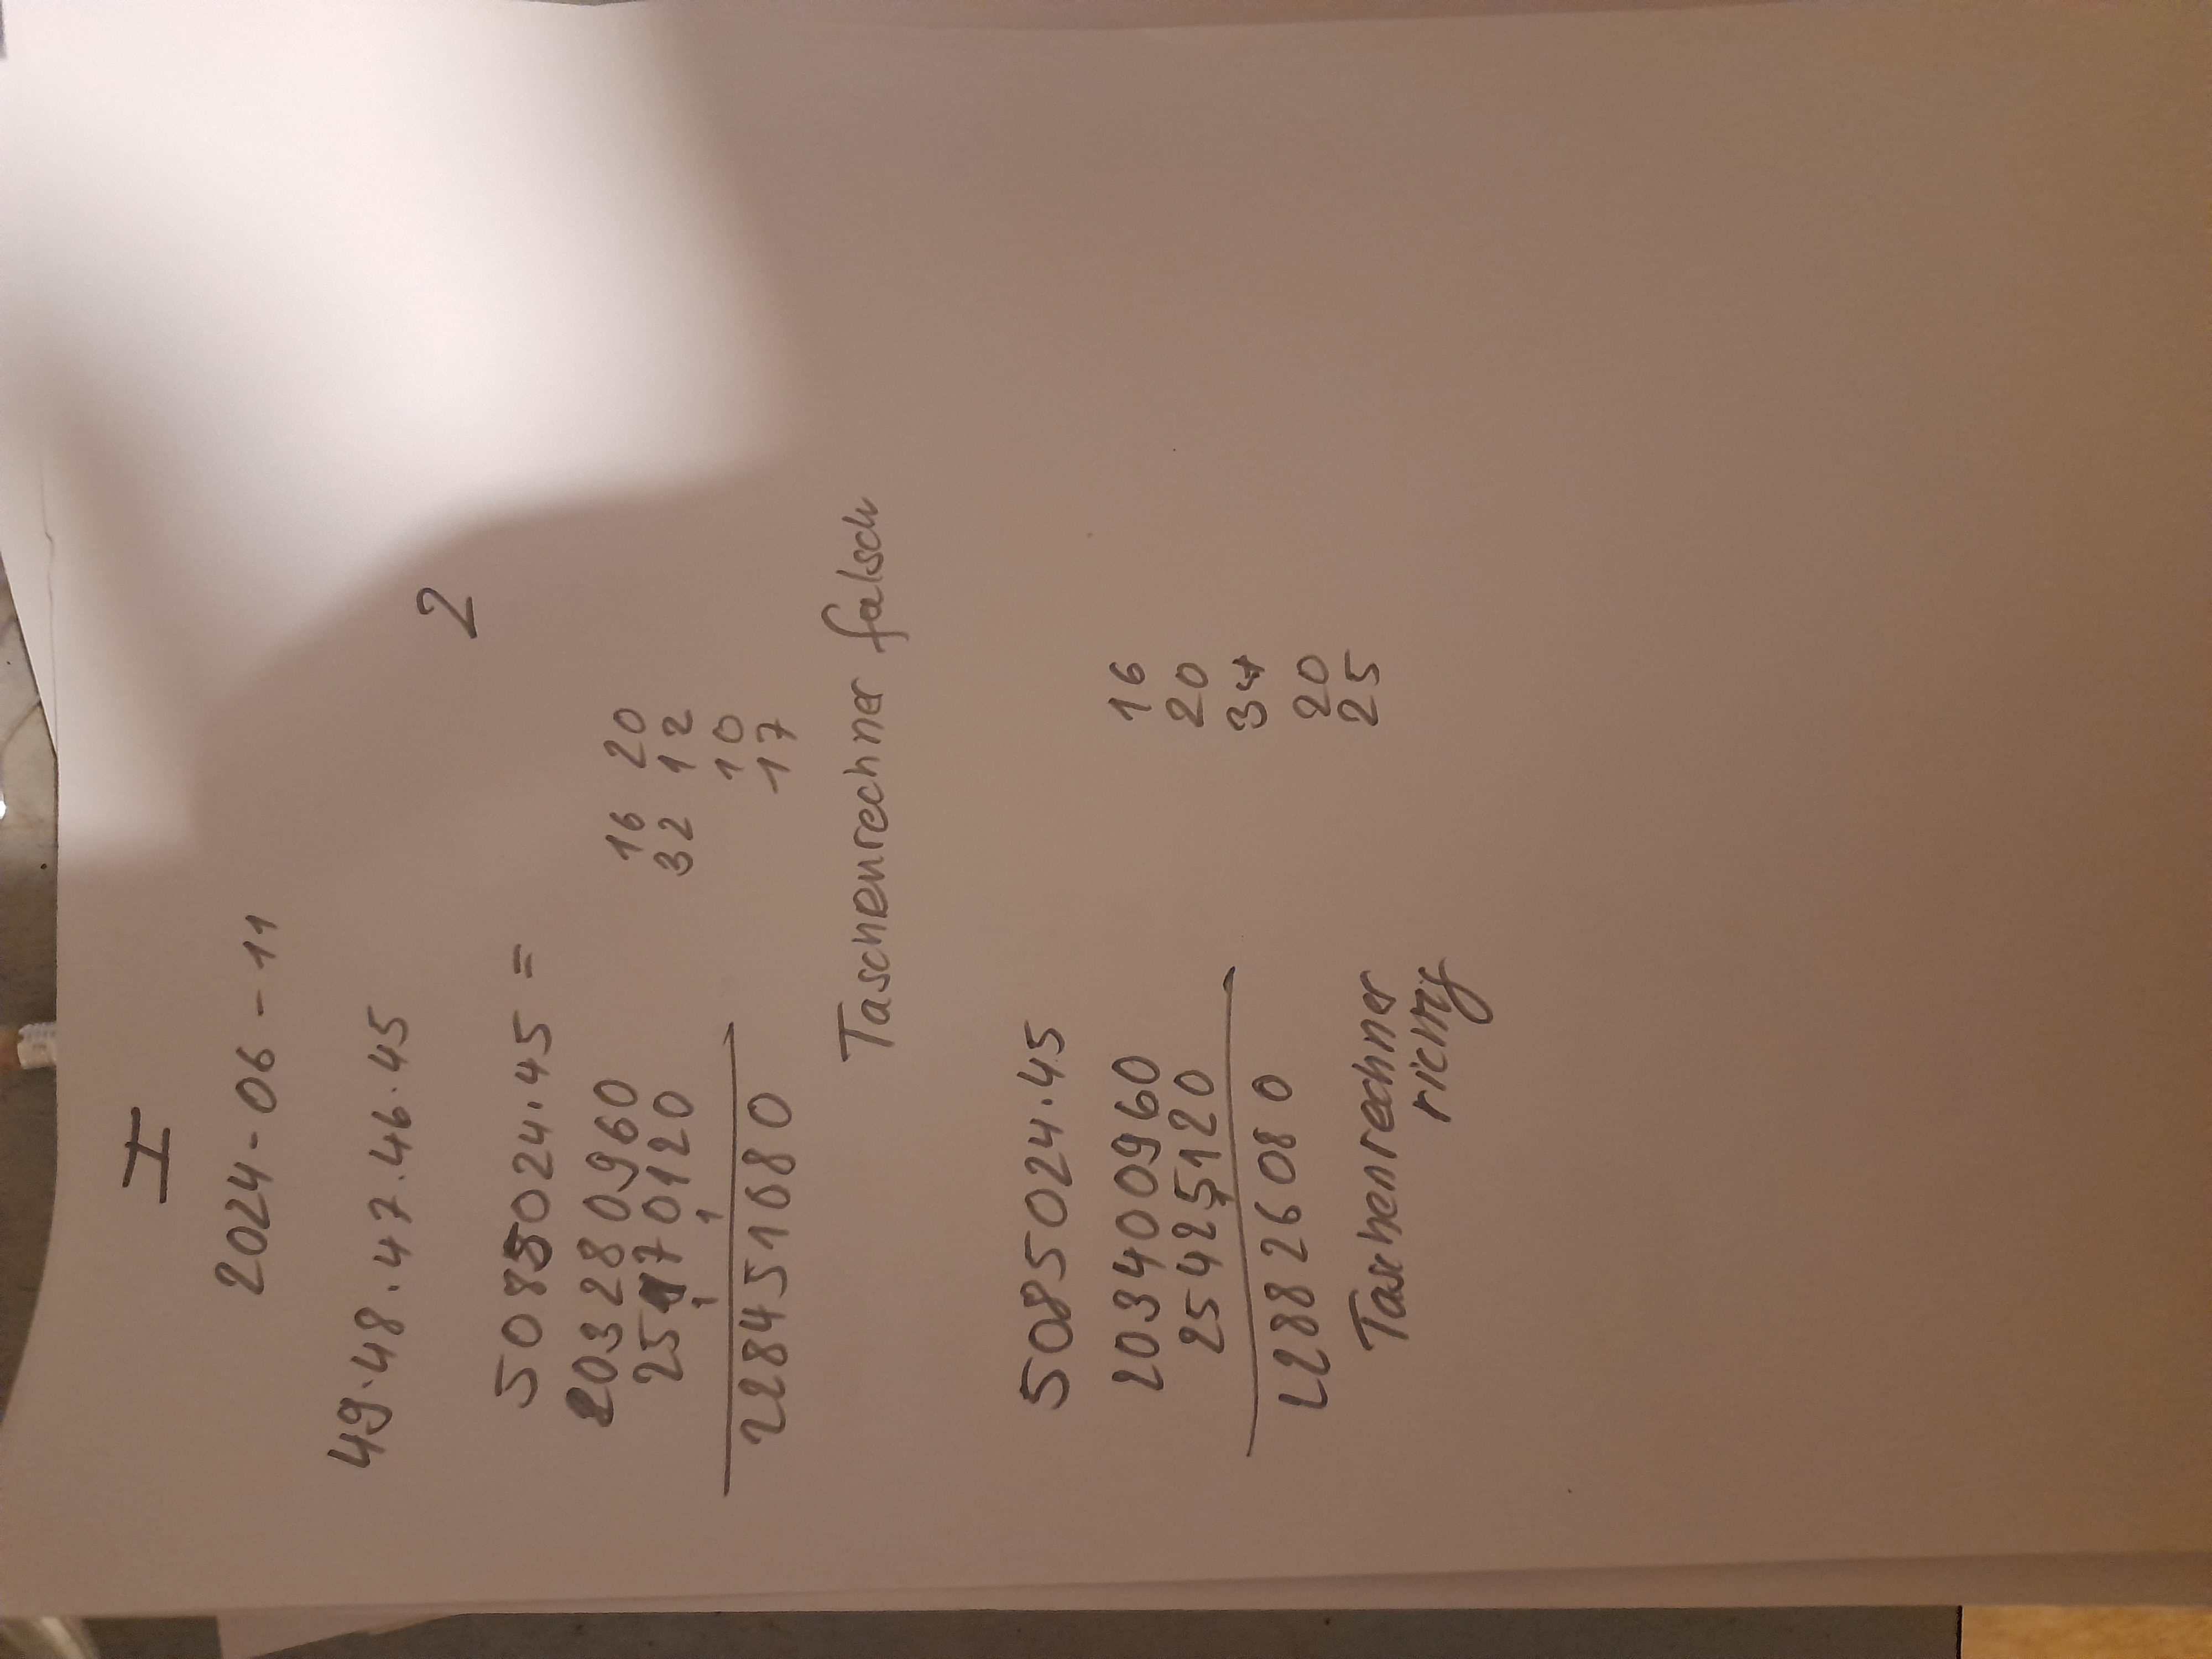 I
2024-06-11
49.48.47.46.45
2
5085024.45=
20328 0960
16 20
25170120
32 12
1 1
10
228451080
17
Taschenrechner falsch
5085024.45
203400960
16
25425120
20
34
228826080
20
25
Taschenrechner
richtig